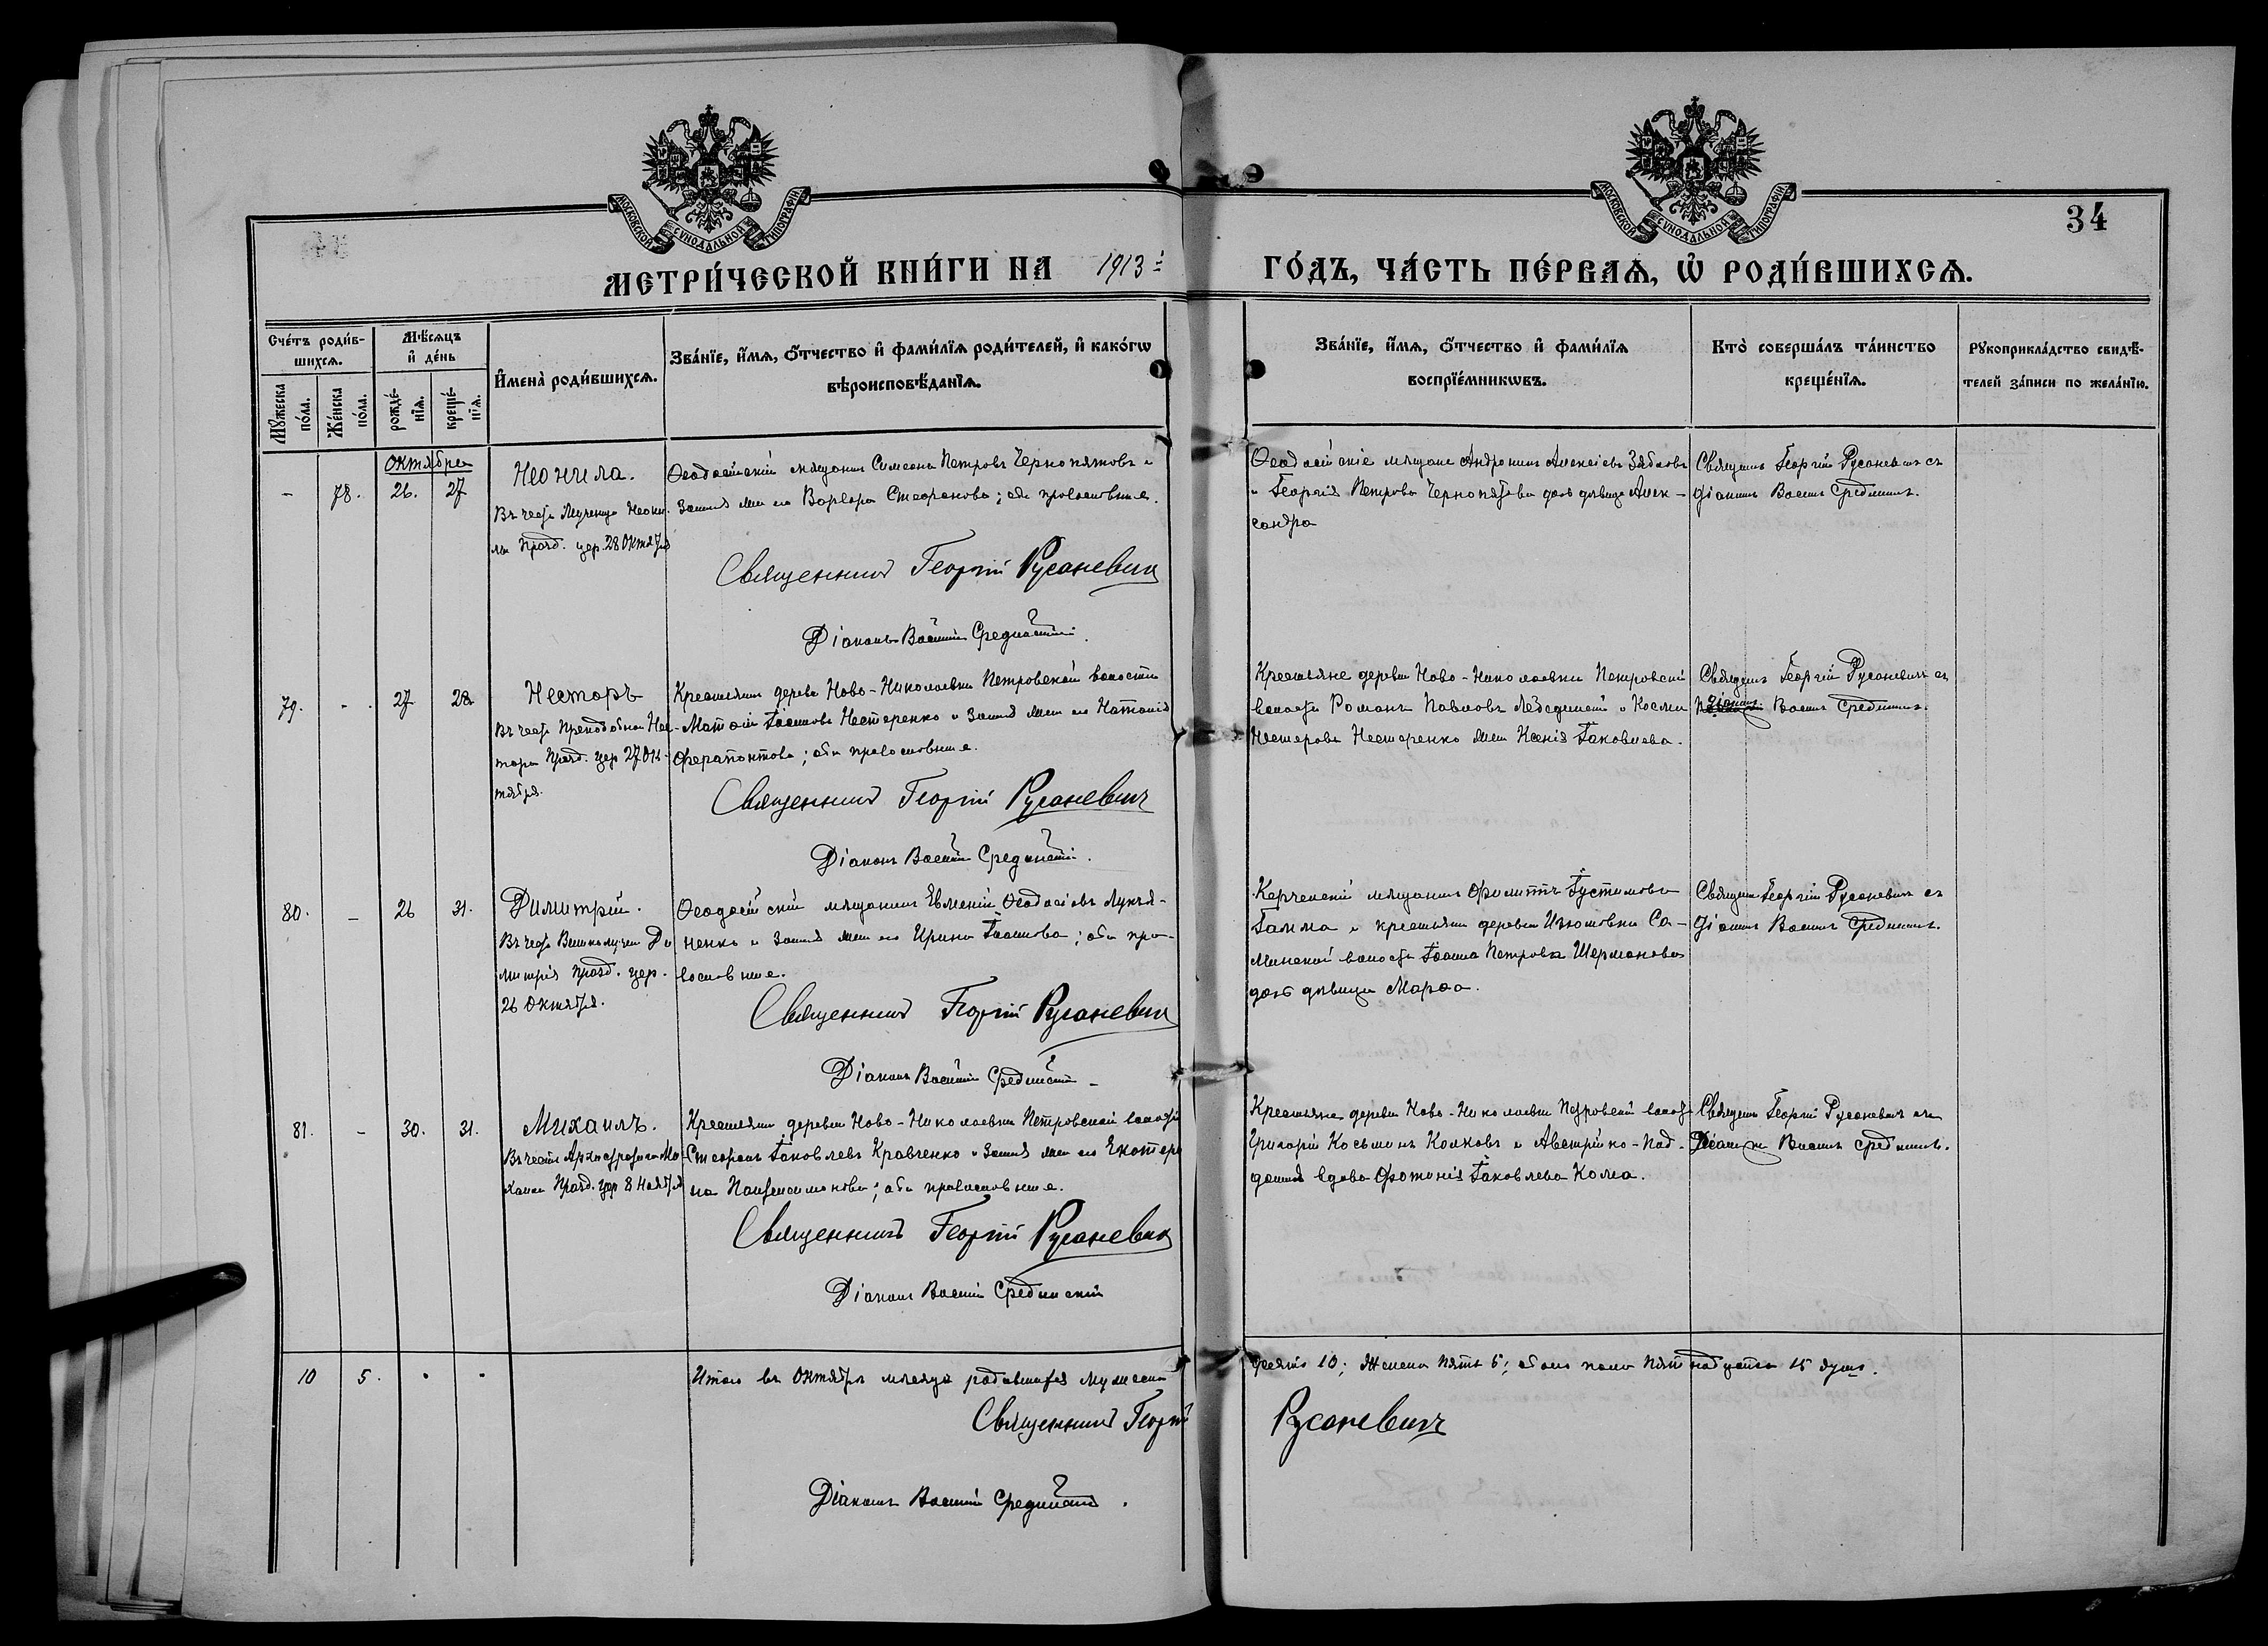 МОСКОВСКОЙ СѴНОДАЛЬНОЙ ТИПОГРАФІИ
МОСКОВСКОЙ СѴНОДАЛЬНОЙ ТИПОГРАФІИ
34
МЕТРИ́ЧЕСКОЙ КНИ́ГИ НА 1913й
ГО́ДЪ, ЧА́СТЬ ПЕ́РВАѦ, Ѡ҆ РОДИ́ВШИХСѦ.
Сче́тъ роди́в-
шихсѧ.
Мѣ́сѧцъ
и҆ де́нь
Мꙋ́жеска
по́ла.
Же́нска
по́ла.
рожде́-
нїѧ.
креще́-
нїѧ.
И҆мена̀ роди́вшихсѧ.
Зва́нїе, и҆́мѧ, ѻ҆́тчество и҆ фами́лїѧ роди́телей, и҆ како́гѡ
вѣроисповѣ́данїѧ.
Зва́нїе, и҆́мѧ, ѻ҆́тчество и҆ фами́лїѧ
воспрїе́мникѡвъ.
Кто̀ соверша́лъ та́инство
креще́нїѧ.
Рꙋкоприкла́дство свидѣ́-
телей за́писи по жела́нїю.
Октября
- 78. 26. 27
Неонила.
Въ честь Мученицы Неони-
лы празд. цер. 28 Октября
Ѳеодосійскій мѣщанинъ Симеонъ Петровъ Чернопятовъ и
законная жена его Варвара Стефанова; оба православные.
Священникъ Георгій Русаневичъ
Діаконъ Василій Срединскій.
Ѳеодосійскіе мѣщане Андроникъ Алексіевъ Зябловъ
и Георгія Петрова Чернопятова дочь дѣвица Алек-
сандра
Священникъ Георгій Русаневичъ съ
діакономъ Василіемъ Срединскимъ.
79. - 27 28
Несторъ
Въ честь Преподобнаго Нес-
тора празд. цер 27 Ок-
тября.
Крестьянинъ деревни Ново-Николаевки Петровской волости
Матѳій Іоанновъ Нестеренко и законная жена его Наталія
Ферапонтова; оба православные.
Священникъ Георгій Русаневичъ
Діаконъ Василій Срединскій.
Крестьяне деревни Ново-Николаевки Петровской
волости Романъ Павловъ Лебединскій и Космы
Нестерова Нестеренко жена Ксенія Іаковлева.
Священникъ Георгій Русаневичъ съ
діакономъ Василіемъ Срединскимъ.
80. - 26 31.
Димитрій.
Въ честь Великомученика Ди
митрія празд. цер.
26 Октября.
Ѳеодосійскій мѣщанинъ Евменій Ѳеодосіевъ Лукья-
ненко и законная жена его Ирина Іоаннова; оба пра-
вославные.
Священникъ Георгій Русаневичъ
Діаконъ Василій Срединскій
Керченскій мѣщанинъ Филиппъ Іустимовъ
Гамма и крестьянина деревни Изюмовки Са-
линской волости Іоанна Петрова Шерманова
дочь дѣвица Марѳа.
Священникъ Георгій Русаневичъ съ
діакономъ Василіемъ Срединскимъ.
81. - 30. 31.
Михаилъ.
Въ честь Архистратига Ми
хаила празд. цер 8 Ноября
Крестьянинъ деревни Ново-Николаевки Петровской волости
Стефанъ Іаковлевъ Кравченко и законная жена его Екатери
на Пантелеимонова; оба православные.
Священникъ Георгій Русаневичъ
Діаконъ Василій Срединскій
Крестьяне деревни Ново-Николаевки Петровской волости
Григорій Косьминъ Колковъ и Австрійско-Под-
данная вдова Фотинія Іаковлева Кома.
Священникъ Георгій Русаневичъ съ
Діакономъ Василіемъ Срединскимъ.
10 5. - -
Итого въ Октябрѣ мѣсяцѣ родившихся мужеска
десять 10; женска пять 5; обоего пола пятнадцать 15 душъ.
Священникъ Георгій Русаневичъ
Діаконъ Василій Срединскій.